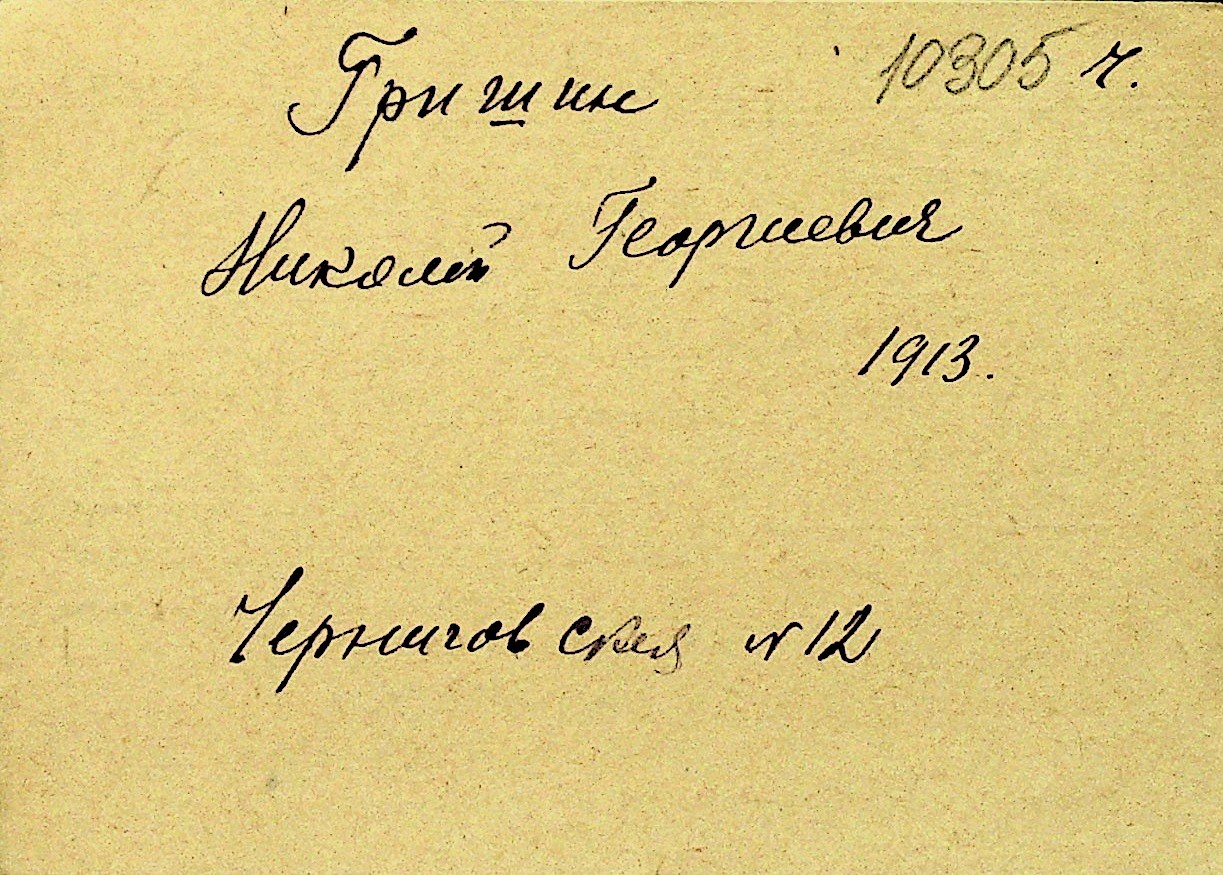 Гришин 10305 ч.
Николай Георгиевич
1913.
Черниговская № 12